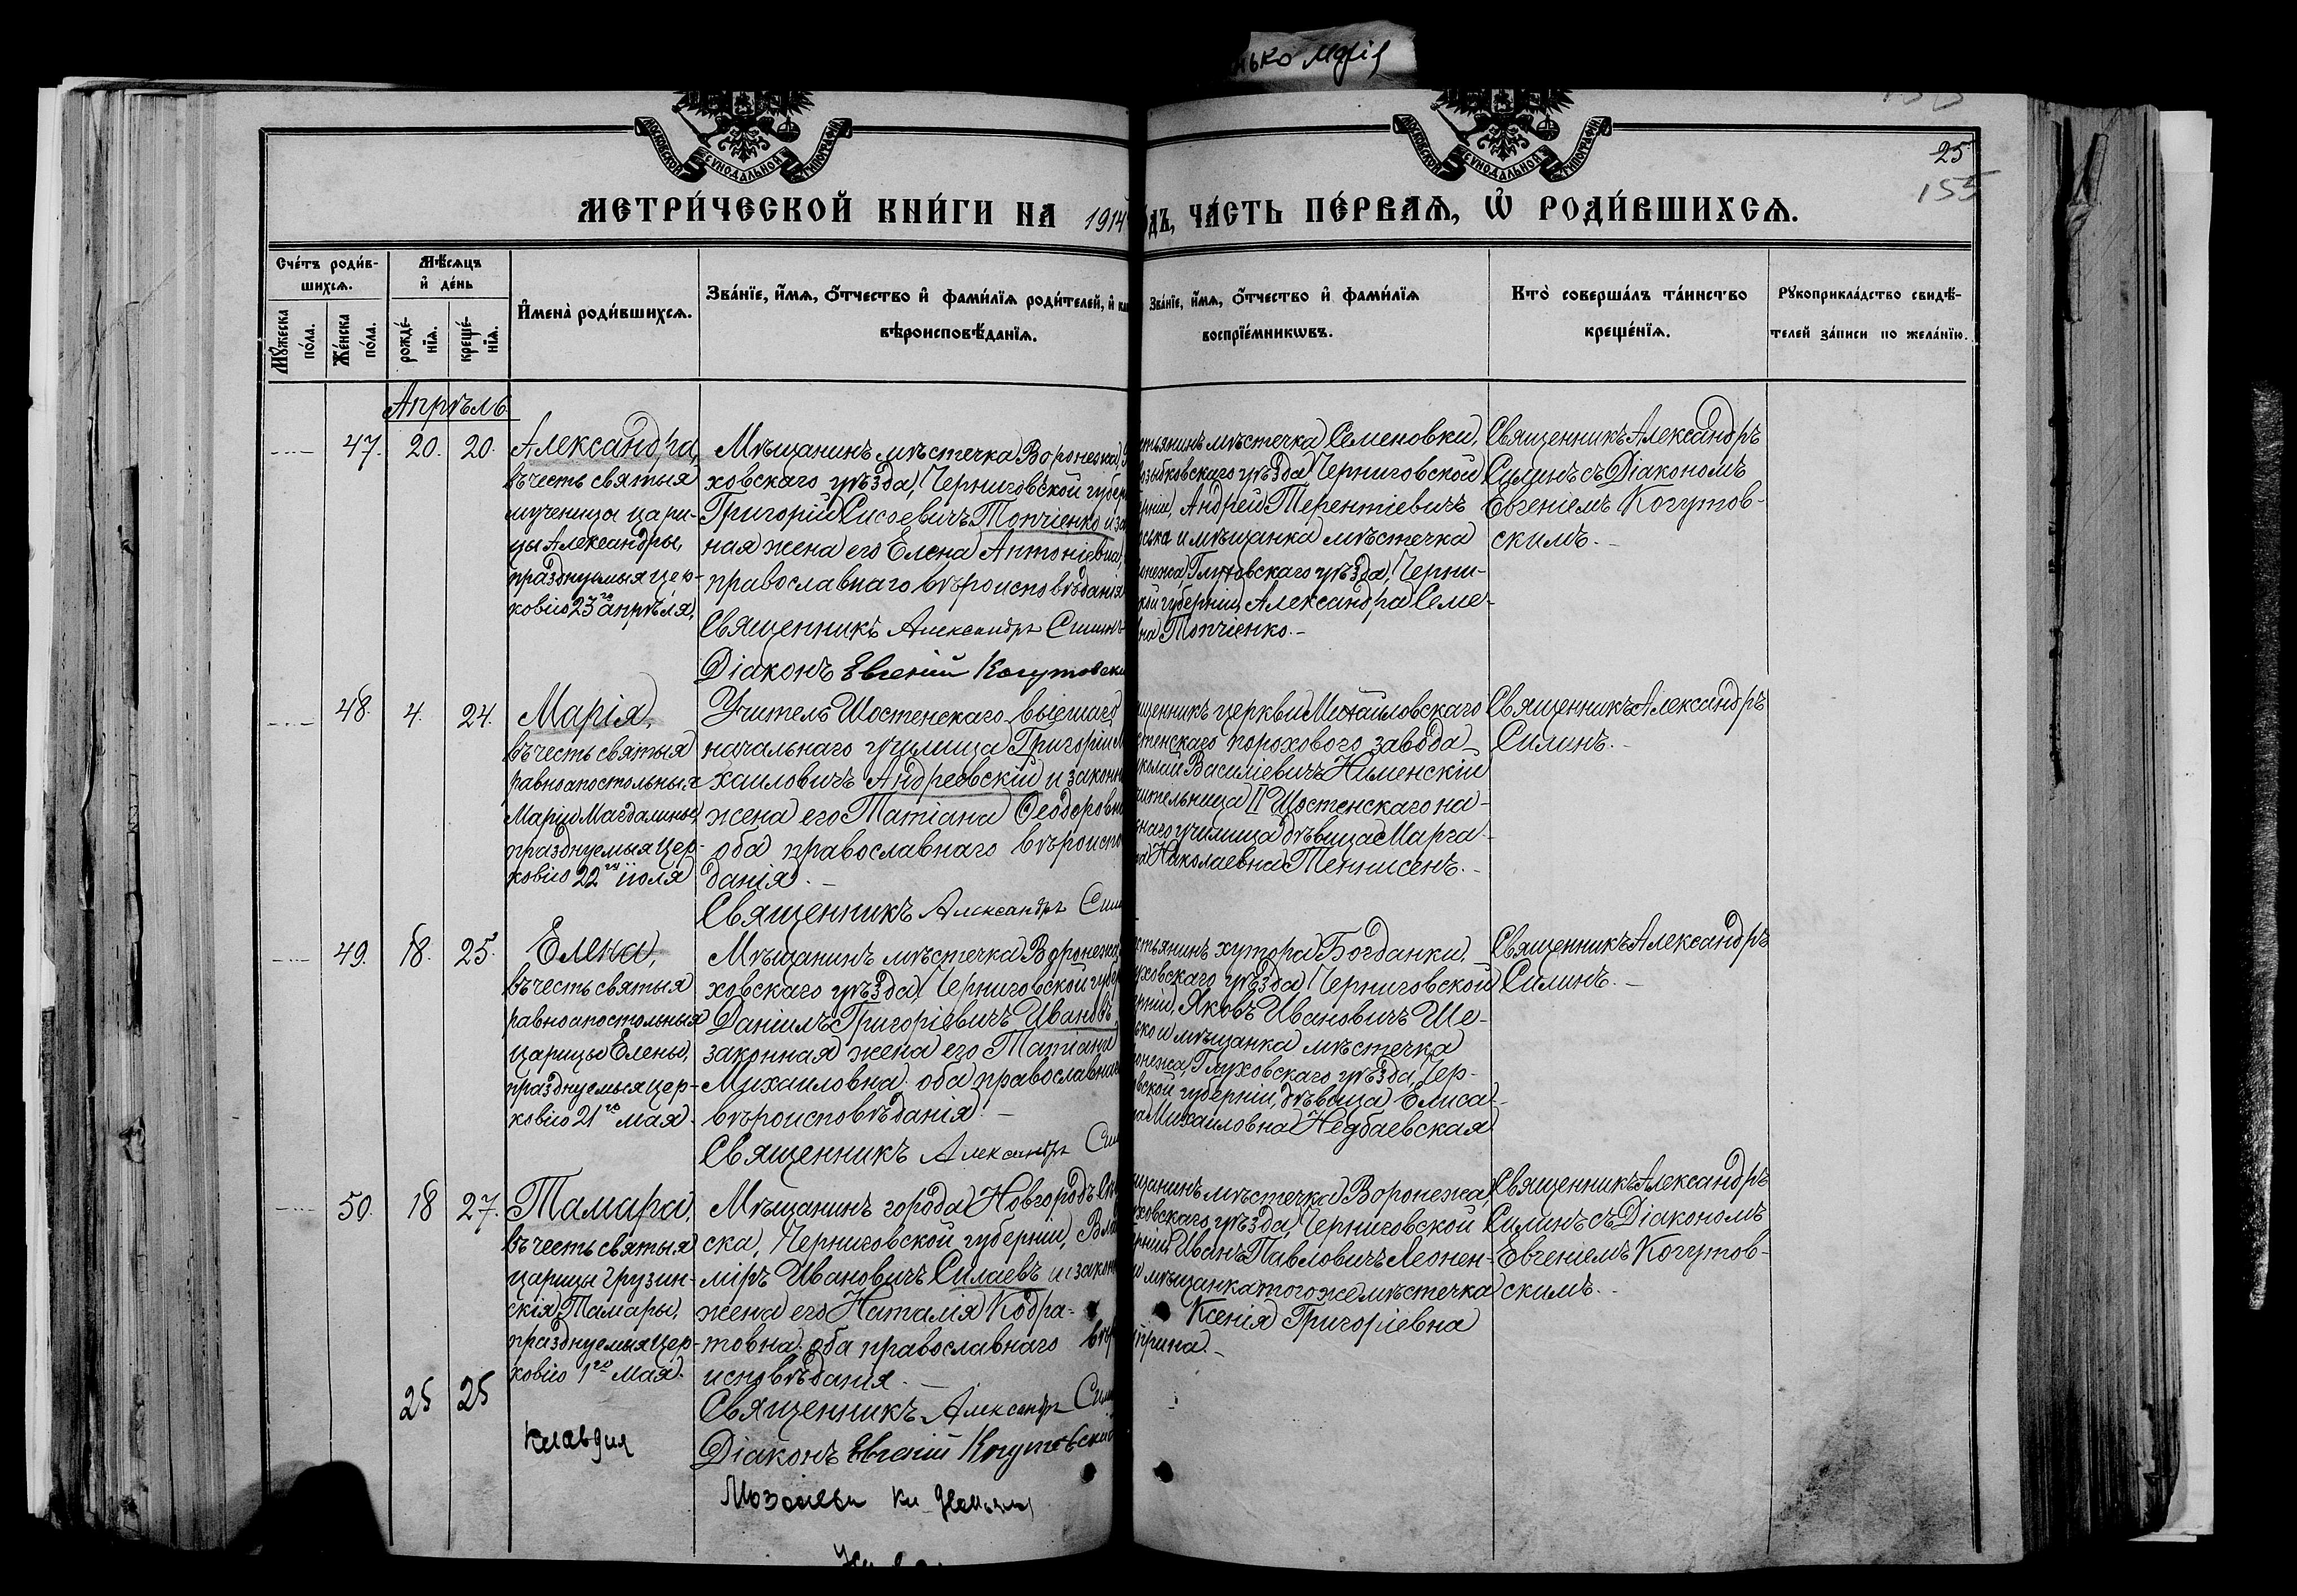 нько Марія
МОСКОВСКОЙ СѴНОДАЛЬНОЙ ТИПОГРАФІИ
МОСКОВСКОЙ СѴНОДАЛЬНОЙ ТИПОГРАФІИ
25
155
МЕТРИ́ЧЕСКОЙ КНИ́ГИ НА 1914
ДЪ, ЧА́СТЬ ПЕ́РВАѦ, Ѽ РОДИ́ВШИХСѦ.
Сче́тъ роди́в-
шихсѧ.
Мѣ́сѧцъ
и҆ де́нь
Мꙋ́жеска
по́ла.
Же́нска
по́ла.
рожде́-
нїѧ.
креще́-
нїѧ.
И҆мена̀ роди́вшихсѧ.
Зва́нїе, и҆́мѧ, ѻ҆́тчество и҆ фами́лїѧ роди́телей, и҆ как
вѣроисповѣ́данїѧ.
Зва́нїе, и҆́мѧ, ѻ҆́тчество и҆ фами́лїѧ
воспрїе́мникѡвъ.
Кто̀ соверша́лъ та́инство
креще́нїѧ.
Рꙋкоприкла́дство свидѣ́-
телей за́писи по жела́нїю.
Апрѣль
47. 20. 20.
Александра,
въ честь святыя
мученицы цари-
цы Александры,
празднуемыя цер-
ковію 23го апрѣля.
Мѣщанинъ мѣстечка Воронежа, Г
ховскаго уѣзда, Черниговской губер
Григорій Сисоевичъ Топчіенко и за
ная жена его Елена Антоніевна,
православнаго вѣроисповѣданія
Священникъ Александръ Силинъ
Діаконъ Евгеній Когутовски
тьянинъ мѣстечка Семеновки,
озыбковскаго уѣзда, Черниговской
ерніи, Андрей Терентіевичъ
ська и мѣщанка мѣстечка
онежа, Глуховскаго уѣзда, Черни-
кой губерніи, Александра Семе-
вна Топчіенко.-
Священникъ Александръ
Силинъ съ Діакономъ
Евгеніемъ Когутов-
скимъ.-
48. 4. 24.
Марія,
въ честь святыя
равноапостольныя
Маріи Магдалины,
празднуемыя Цер-
ковію 22го іюля
Учитель Шостенскаго высшаго
начальнаго училища Григорій М
хаиловичъ Андреевскій и законн
жена его Татіана Ѳеодоровна
оба православнаго вѣроиспо
данія.-
Священникъ Александръ Сили
щенникъ церкви Михайловскаго
стенскаго порохового завода
иколай Василіевичъ Нименскій
чительница II Шостенскаго на-
наго училища дѣвица Марга-
та Николаевна Теннисенъ.-
Священникъ Александръ
Силинъ.-
49. 18. 25.
Елена,
въ честь святыя
равноапостольныя
Царицы Елены,
празднуемыя цер-
ковію 21го мая.
Мѣщанинъ мѣстечка Воронежа,
ховскаго уѣзда, Черниговской губер
Даніилъ Григоріевичъ Ивановъ
законная жена его Татіана
Михаиловна. оба православнаг
вѣроисповѣданія.-
Священникъ Александръ Сили
стьянинъ хутора Богданки,
уховскаго уѣзда, Черниговской
ерніи, Яковъ Ивановичъ Ше-
ько и мѣщанка мѣстечка
онежа, Глуховскаго уѣзда, Чер-
вской губерніи, дѣвица Елиса-
та Михаиловна Недбаевская
Священникъ Александръ
Силинъ.-
50. 18 27.
Тамара,
въ честь святыя
царицы Грузин-
скія, Тамары,
празднуемыя Цер-
ковію 1го Мая.
Мѣщанинъ города Новгородъ Сѣв
ска, Черниговской губерніи, Вла
міръ Ивановичъ Силаевъ и закон
жена его Наталія Кодра-
товна. оба православнаго вѣр
исповѣданія.-
Священникъ Александръ Сили
Діаконъ Евгеній Когутовскій
щанинъ мѣстечка Воронежа,
уховскаго уѣзда, Черниговской
ерніи, Иванъ Павловичъ Леонен-
и мѣщанка того же мѣстечка
Ксенія Григоріевна
прина.-
Священникъ Александръ
Силинъ съ Діакономъ
Евгеніемъ Когутов-
скимъ.-
25 25
Клавдия